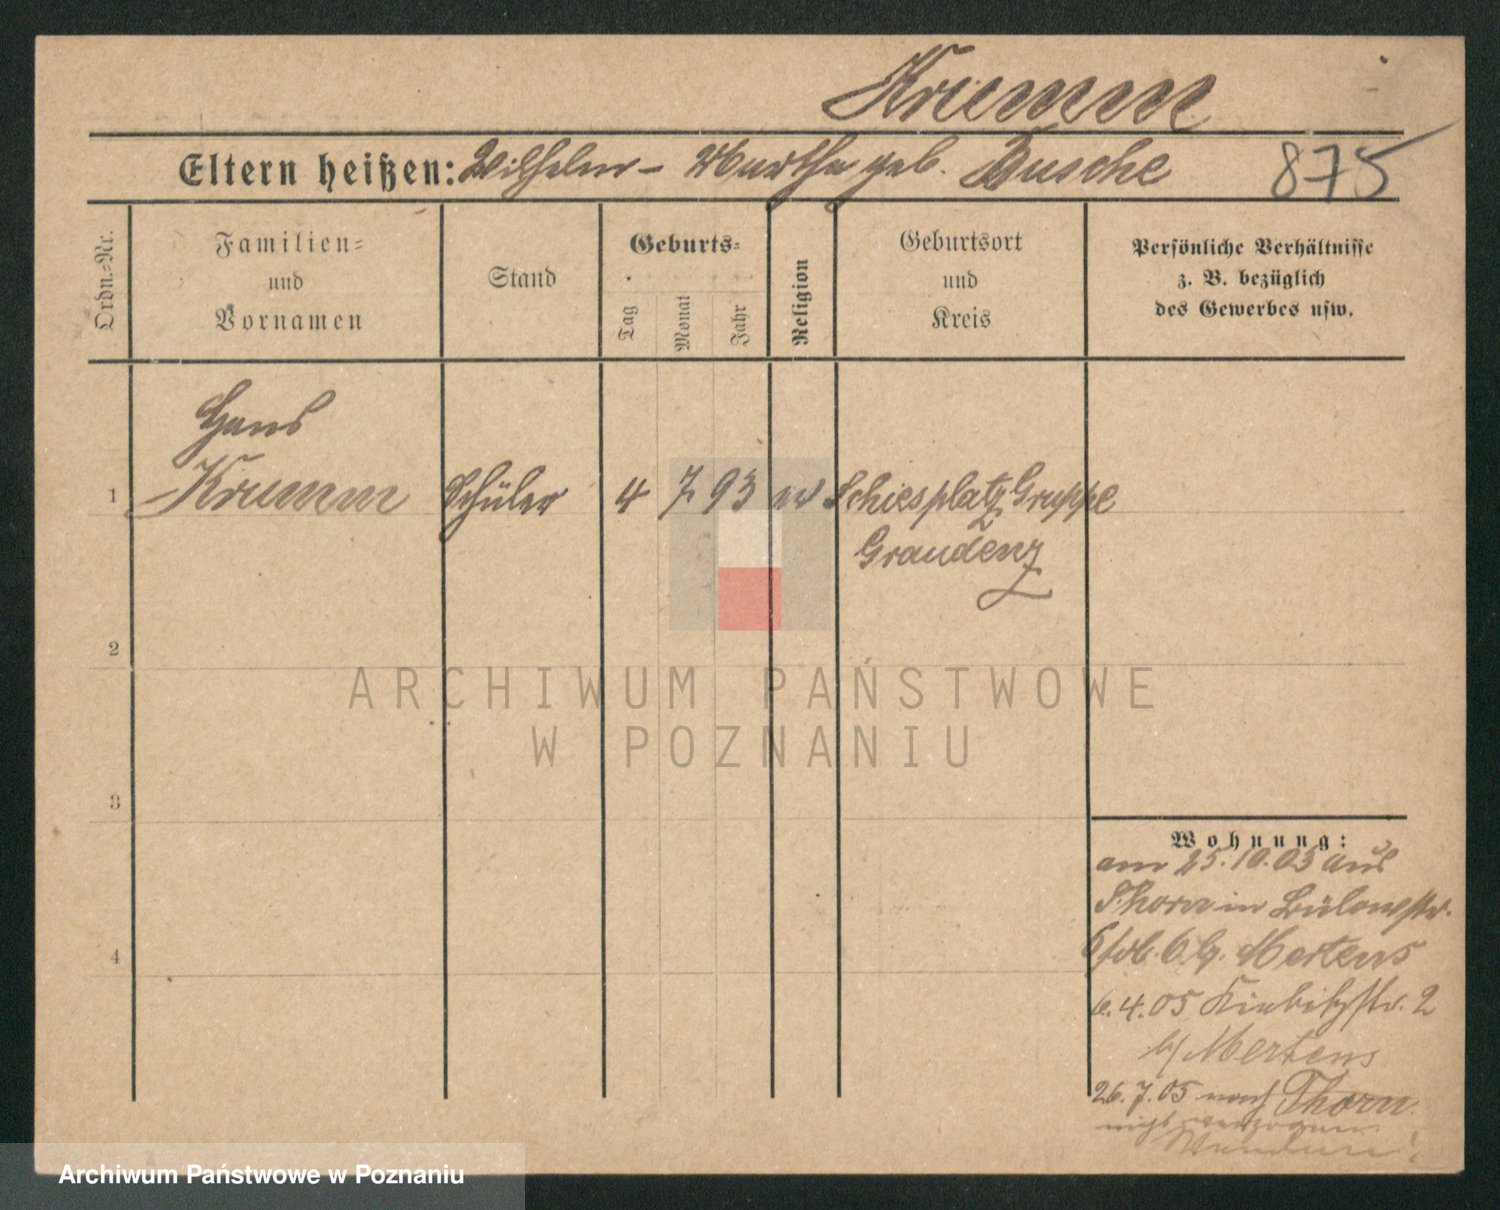 Krumm
Eltern heißen: Wilhelm - Martha geb. Busche 875
Ordn.-Nr.
Familien-
und
Vornamen
Stand
Geburts-
Tag
Monat
Jahr
Religion
Geburtsort
und
Kreis
Persönliche Verhältnisse
z. B. bezüglich
des Gewerbes usw.
Hans
1 Krumm Schüler 4 7 93 ev Schiesplatz Gruppe
Graudenz
2
3
4
Wohnung:
am 25.10.03 aus
Thorn in Bülowstr.
b/ Mertens
6.4.05 Kiebitzstr. 2
b/ Mertens
26.7.05 nach Thorn
ARCHIWUM PAŃSTWOWE
W POZNANIU
Archiwum Państwowe w Poznaniu